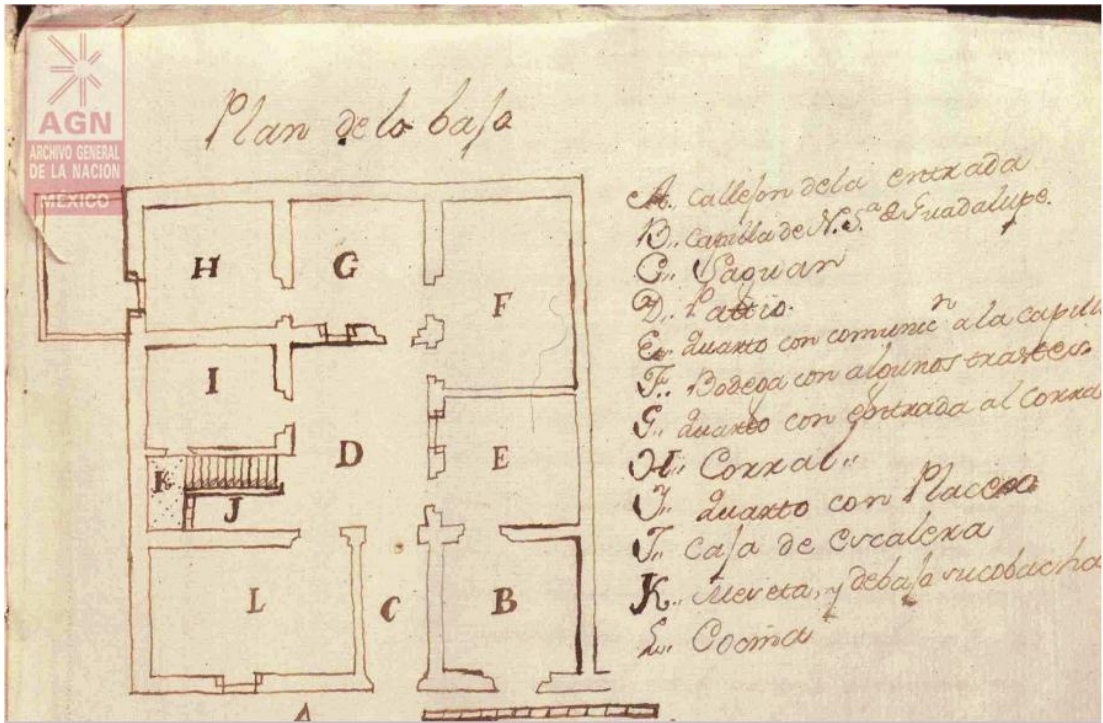 AGN
ARCHIVO GENERAL
DE LA NACION
MÉXICO
Plan de lo baſo
A.. Callejon dela entrada
B.. Capilla de N. S.ª de Guadalupe.
C.. Saguan
D.. Pattio.
E.. Quarto con comunic.n a la capill
F.. Bodega con algunos trastes.
G.. Quarto con entrada al Corra
H.. Corral..
I.. Quarto con Placera
J.. Caja de escalera
K.. y debajo
L.. Cocina
H
G
F
I
D
E
K
J
L
C
B
A